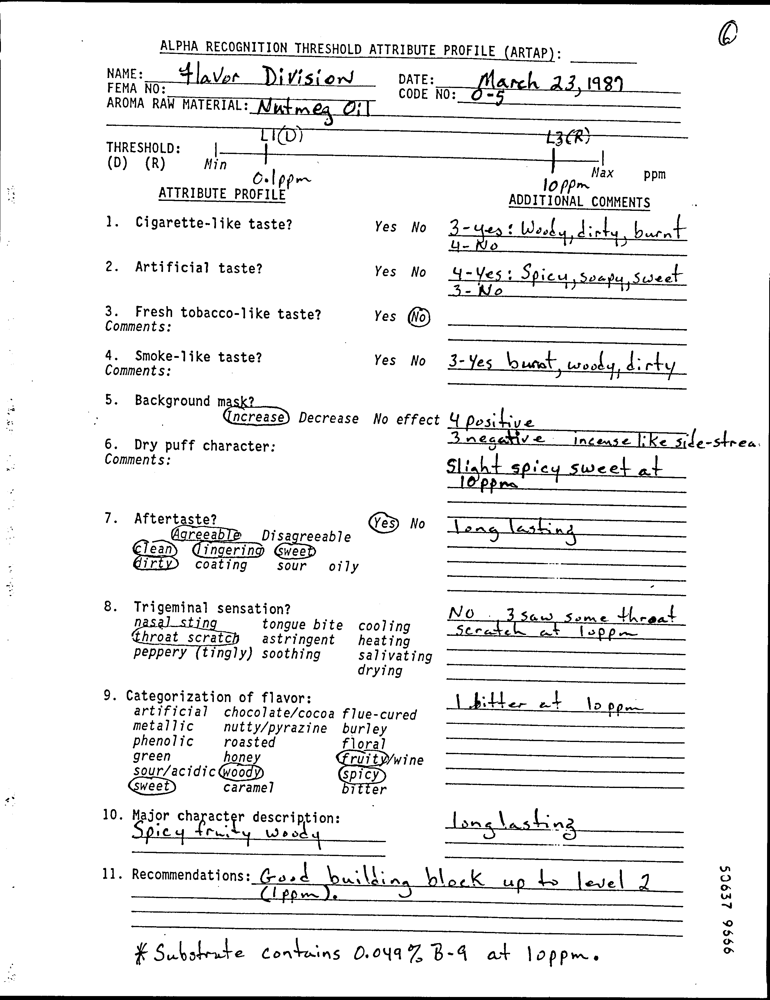 6
ALPHA RECOGNITION THRESHOLD ATTRIBUTE PROFILE (ARTAP):
NAME: Flavor Division DATE: March 23, 1987
FEMA NO: CODE NO: O-5
AROMA RAW MATERIAL: Nutmeg Oil
L1(D) L3(R)
THRESHOLD:
(D) (R) Min Max ppm
0.1ppm 10ppm
ATTRIBUTE PROFILE ADDITIONAL COMMENTS
1. Cigarette-like taste? Yes No 3-yes: Woody, dirty, burnt
4-No
2. Artificial taste? Yes No 4-Yes: Spicy, soapy, sweet
3-No
3. Fresh tobacco-like taste? Yes No
Comments:
4. Smoke-like taste? Yes No 3-Yes burnt, woody, dirty
Comments:
5. Background mask?
Increase Decrease No effect 4 positive
3 negative incense like side-strea
6. Dry puff character:
Comments: Slight spicy sweet at
10ppm
7. Aftertaste? Yes No Long lasting
Agreeable Disagreeable
clean lingering sweet
dirty coating sour oily
8. Trigeminal sensation? No. 3 saw some throat
nasal sting tongue bite cooling scratch at 10ppm
throat scratch astringent heating
peppery (tingly) soothing salivating
drying
9. Categorization of flavor: 1 bitter at 10 ppm
artificial chocolate/cocoa flue-cured
metallic nutty/pyrazine burley
phenolic roasted floral
green honey fruity/wine
sour/acidic woody spicy
sweet caramel bitter
10. Major character description: long lasting
Spicy fruity woody
11. Recommendations: Good building block up to level 2
(1ppm).
* Substrate contains 0.049% B-9 at 10ppm.
50637 9666